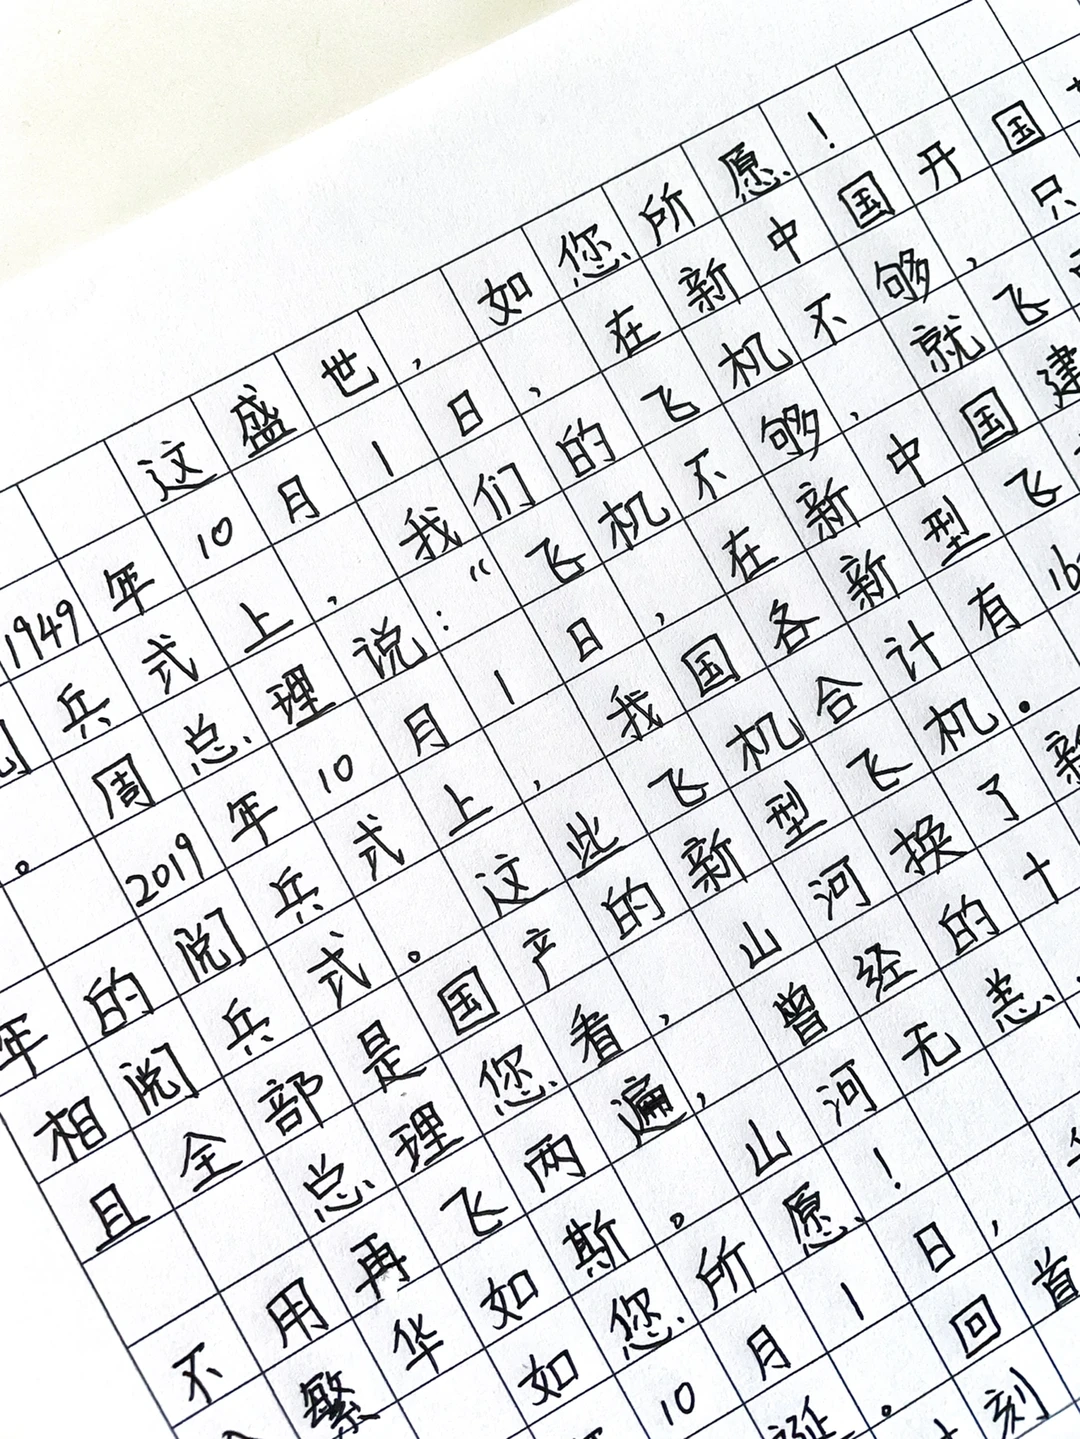 这盛世，如您所愿！
1949年10月1日，在新中国开国
阅兵式上，我们的飞机不够，只
。周总理说：“飞机不够，就飞
2019年10月1日，在新中国建
年的阅兵式上，我国各新型飞
相阅兵式。这些飞机合计有
且全部是国产的新型飞机。
总理您看，山河换了新
不用再飞两遍，曾经的十
繁华如斯。山河无恙，
如您所愿！
10月1日，
诞。回首
刻